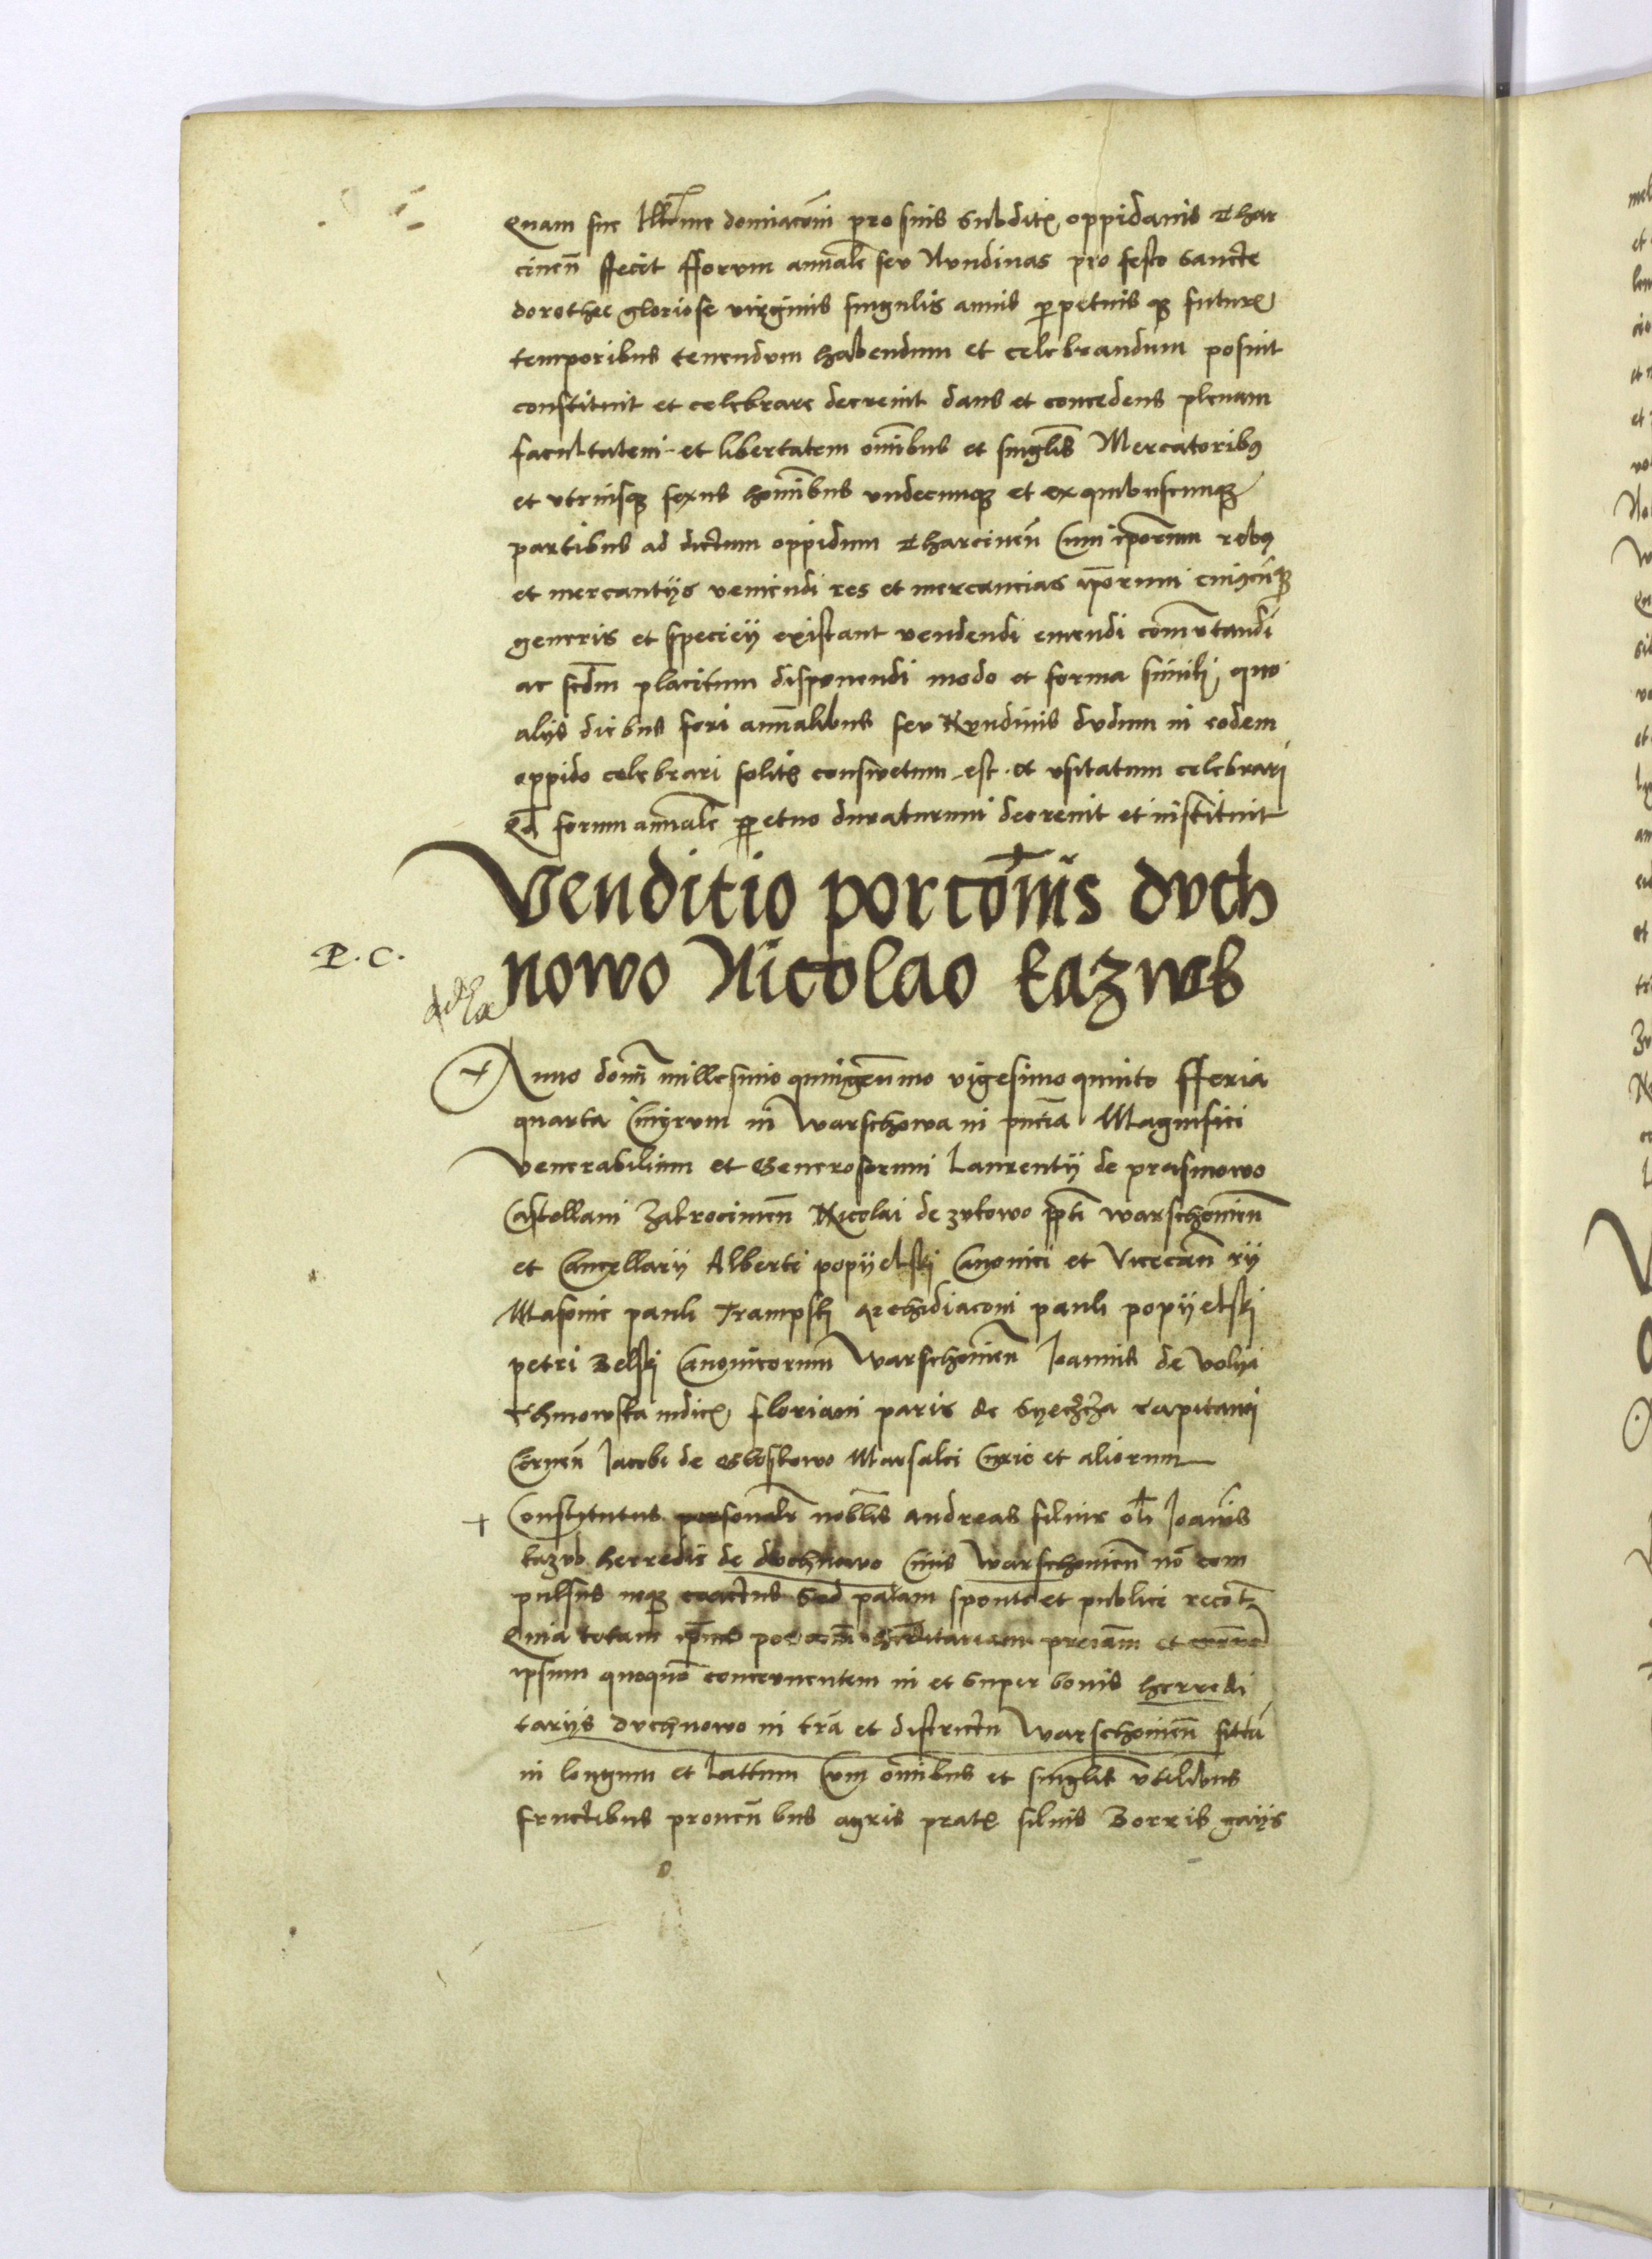 Quam sue Illme domiacōni pro suis Subditꝭ oppidanis Thar
cinen̄ ffecit fforum annale seu Nundinas pro festo Sancte
dorothee gloriose virginis singulis annis ꝑpetuis qꝫ futurꝭ
temporibus tenendum habendum et celebrandum posuit
constituit et celebrare decreuit dans et concedens plenam
facultatem et libertatem om̄ibus et singl̄is Mercatoribꝰ
et vtriusqꝫ sexus homībus vndecunqꝫ et ex quibuscunqꝫ
partibus ad dictum oppidum Tharcinen̄ Cum ip̄orum rebꝰ
et mercantijs veniendi res et mercancias ip̄orum cuiꝰcūqꝫ
generis et speciey existant vendendi emendi com̄utandi
ac scd̄m placitum disponendi modo et forma simili quo
alijs diebus fori annalibus seu Nundinis dudum in eodem
oppido celebrari solitꝭ consuetum est et vsitatum celebrari
Qd̄ forum annale ꝑpetuo duraturum decreuit et instituit
Venditio porcōnis duch
nowo Nicolao kazub
P. C.
Anno domī millesimo quingen̄mo vigesimo quinto fferia
quarta Cinerum in Warschowa in pn̄tia Magnifici
Venerabilium et Generosorum Laurentij de prasmowo
Castellani Zakrocimen̄ Nicolai de zukowo pp̄ti Warschouien̄
et Cancellarij Alberti popyelski Canonici et Vicecan̄rij
Masouie pauli Trampski Archidiaconi pauli popyelski
petri Belski Canonicorum Warschouien̄ Joannis de Volya
Chinowska iudicꝭ floriani paris de capitanei
Cernen̄ Jacobi de Marsalci Curie et aliorum
+ Constitutus personalr̄ nobl̄is Andreas filius ol̄i Joan̄is
kazub herredis de duchnowo Ciuis Warschouien̄ nō com
pulsus neqꝫ coactus Sed palam sponte et publice recōt
Quia totam ip̄ius porcōm hr̄ditariam
ipsum quoquō concernentem in et super bonis herredi
tarijs duchnowo in trā et districtu Warschouien̄ sittā
in longum et lattum Cum om̄ibus et singl̄is vtilibus
fructibus prouen̄bus agris pratꝭ siluis Borris gaijs